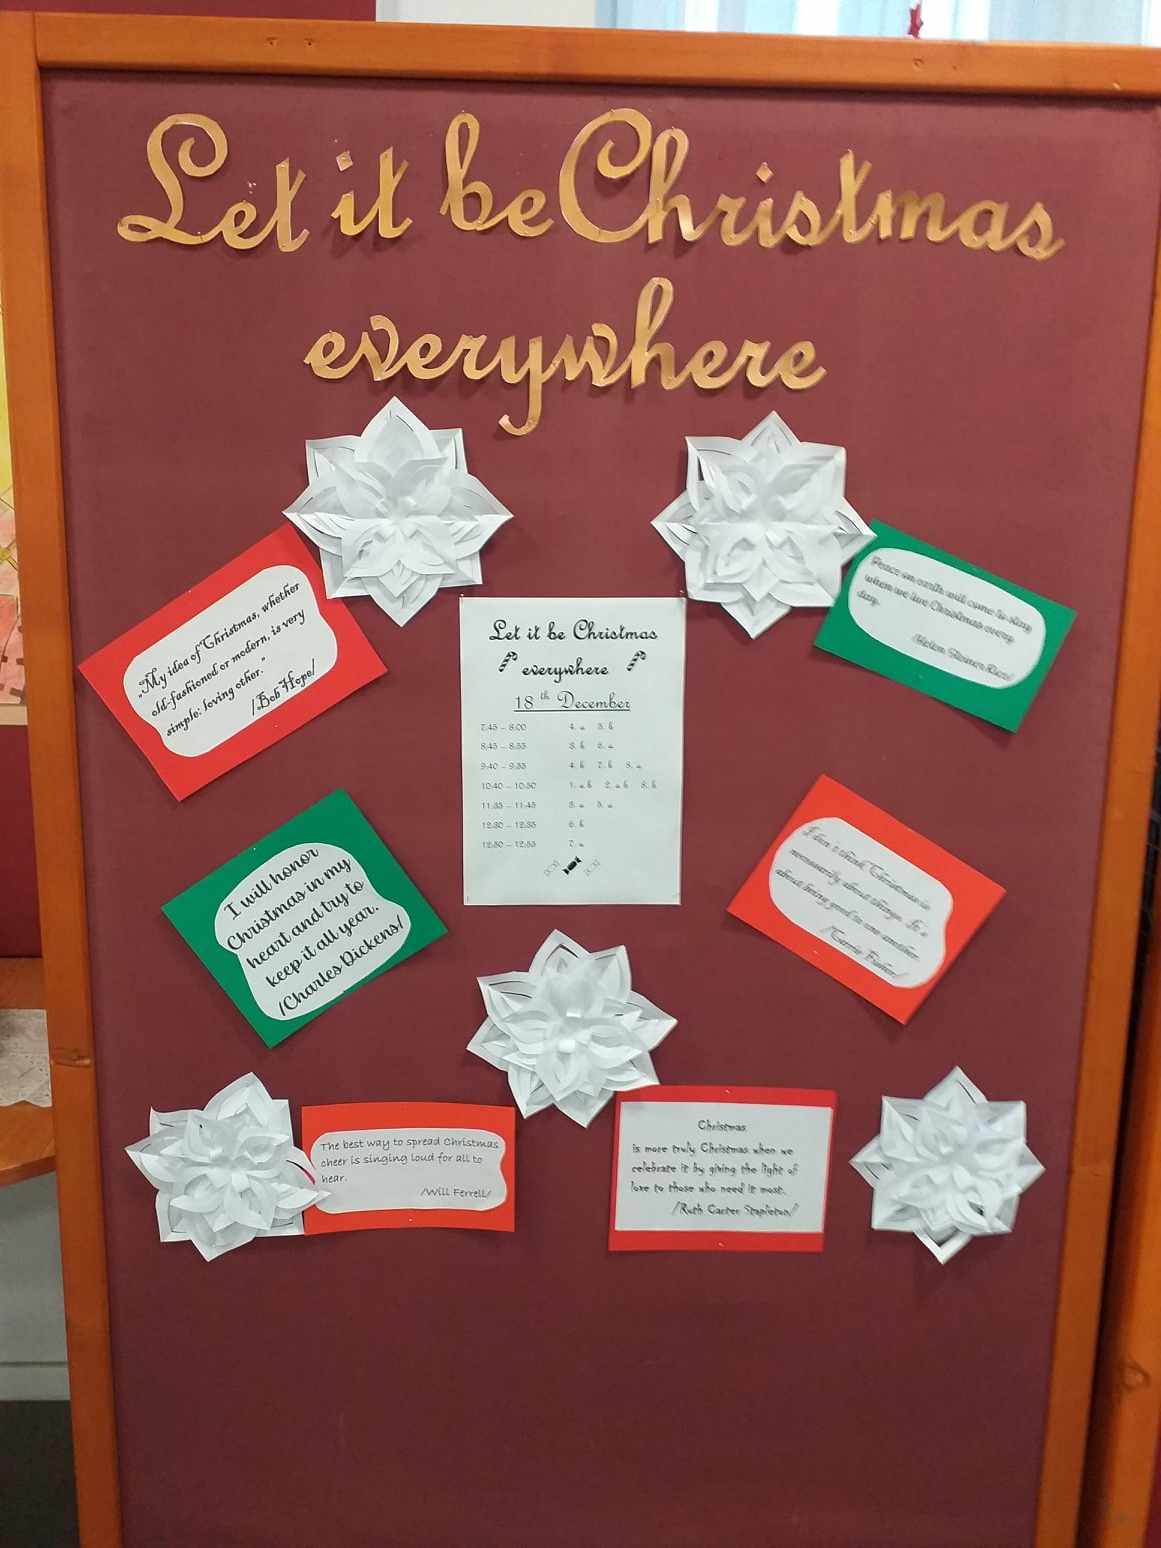 Let it be Christmas
everywhere
„My idea of Christmas, whether
old-fashioned or modern, is very
simple: loving other."
/Bob Hope/
Peace on earth will come to stay
when we live Christmas every
day.
/Helen Steiner Rice/
Let it be Christmas
everywhere
18th December
7:45 – 8:00 4. a 5. b
8:45 – 8:55
9:40 – 9:55 4. b 7. b 8. a
10:40 – 10:50 1. a b 2. a b 8. b
11:35 – 11:45
12:30 – 12:35 6. b
12:50 – 12:55 7. a
I will honor
Christmas in my
heart and try to
keep it all year.
/Charles Dickens/
I don't think Christmas is
necessarily about things. It's
about being good to one another.
/Carrie Fisher/
The best way to spread Christmas
cheer is singing loud for all to
hear.
/Will Ferrell/
Christmas
is more truly Christmas when we
celebrate it by giving the light of
love to those who need it most.
/Ruth Carter Stapleton/